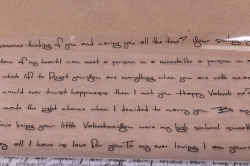 someone thinking of you and caring you all the time? Your smiling
tom of my heart! can meet a person in a minute like a person in
whole life to forget you. You are everything when you are with me
could ever trust happiness then I met you. Happy Valenti
made the right choice when I decided to marry you.
ince being your little Valentine. You were my high school sweet
ry all I have is love for you. To my ever loving, I am you